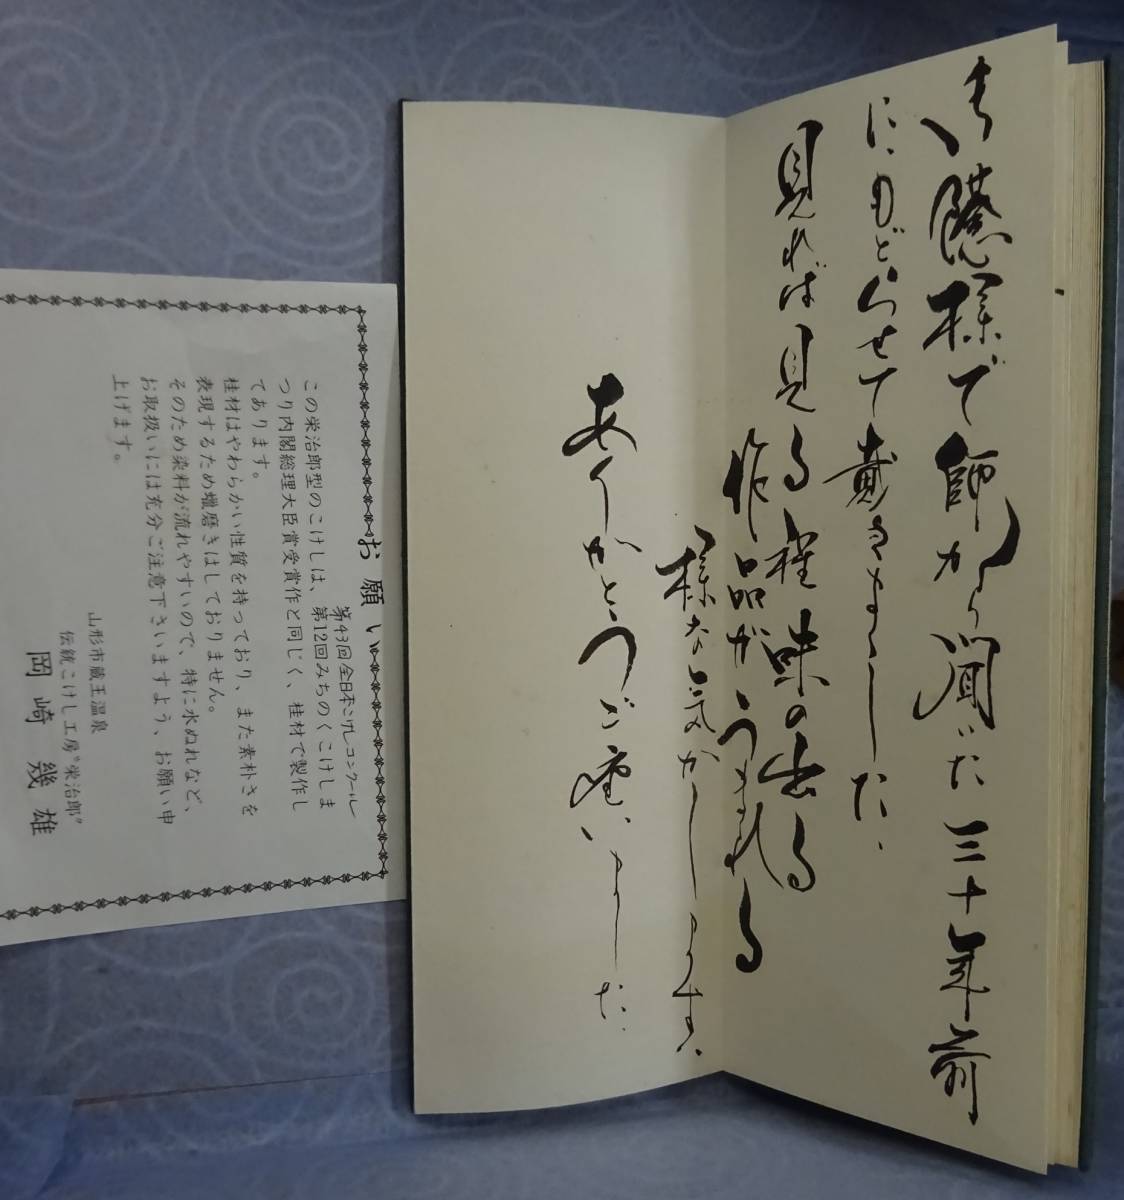 お蔭様で師から聞いた三十年前
にもどらせて戴きました、
見れば見る程味の出る
作品がうまれる
様な気がします、
ありがとうご座いました、
お願い
第43回全日本こけしコンクール
この栄治郎型のこけしは、第12回みちのくこけしま
つり内閣総理大臣賞受賞作と同じく、桂材で製作し
てあります。
桂材はやわらかい性質を持っており、また素朴さを
表現するため蠟磨きはしておりません。
そのため染料が流れやすいので、特に水ぬれなど、
お取扱いには充分ご注意下さいますよう、お願い申
上げます。
山形市蔵王温泉
伝統こけし工房〝栄治郎〟
岡崎幾雄